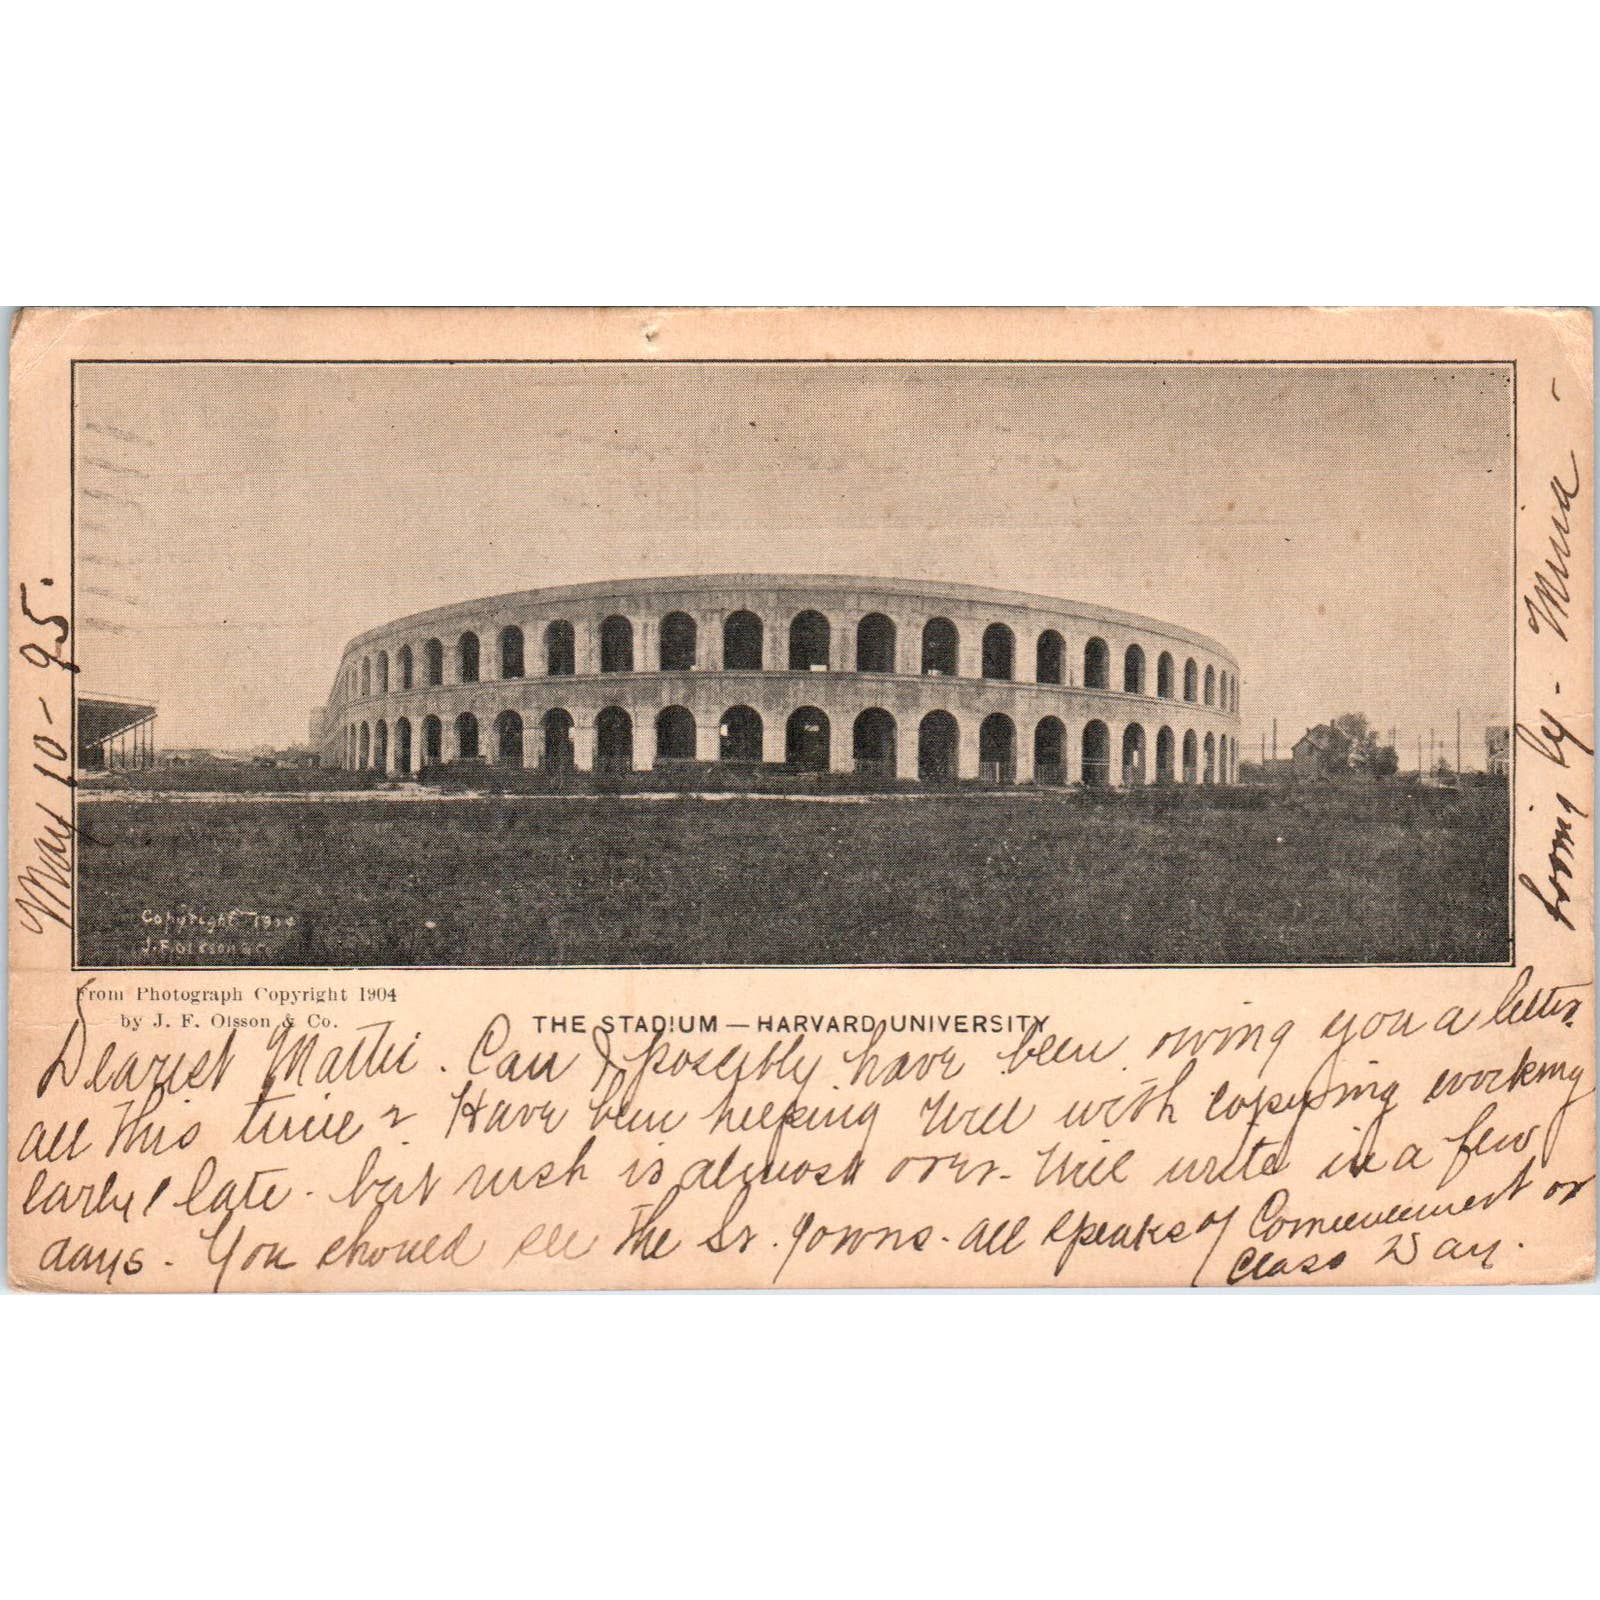 May 10-95.
Copyright 1904
J.F. Olsson & Co.
From Photograph Copyright 1904
by J. F. Olsson & Co.
THE STADIUM — HARVARD UNIVERSITY
Dearest Mattie. Can I possibly have been owing you a letter
all this time? Have been helping Will with copying working
early & late - but rush is almost over - Will write in a few
days - You should see the Sr. gowns - all speaks of Commencement or
Class Day.
loving ly - Mina -